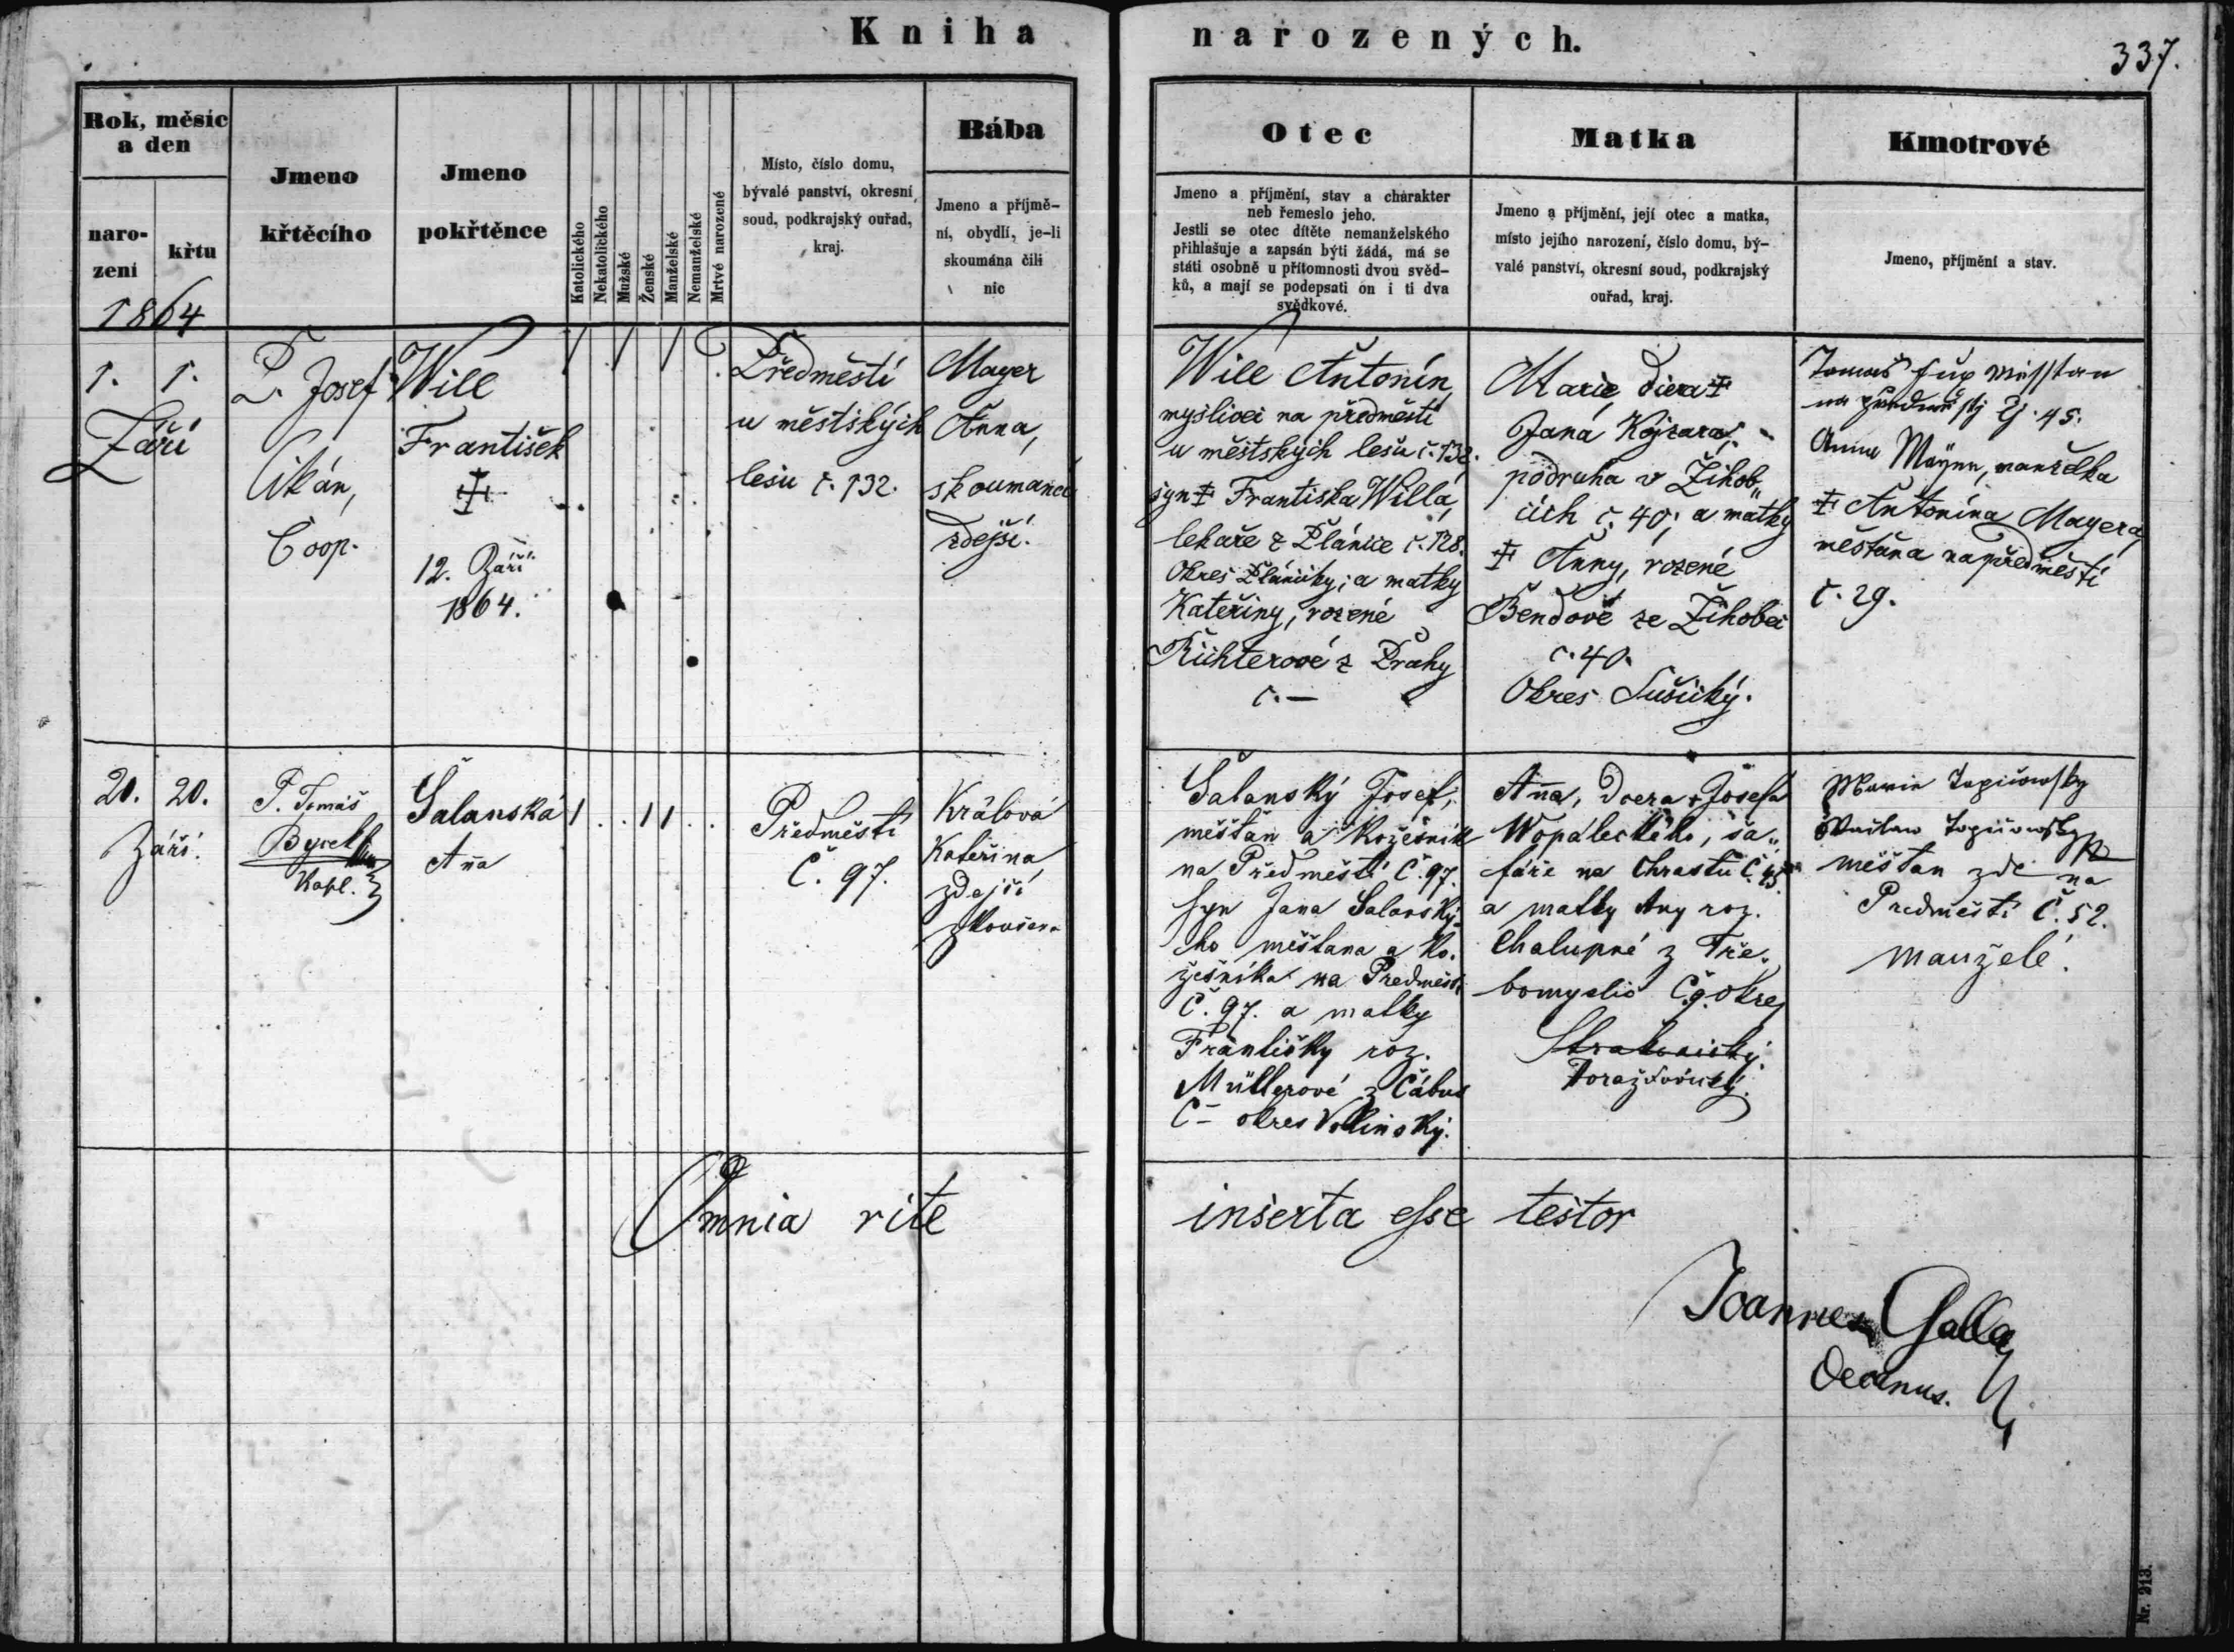 Kniha narozených.
337.
Rok, měsíc
a den
naro-
zení
křtu
1864
Jmeno
křtěcího
Jmeno
pokřtěnce
Katolického
Nekatolického
Mužské
Ženské
Manželské
Nemanželské
Mrtvé narozené
Místo, číslo domu,
bývalé panství, okresní
soud, podkrajský ouřad,
kraj.
Bába
Jmeno a příjmě-
ní, obydlí, je-li
skoumána čili
nic
Otec
Jmeno a příjmění, stav a charakter
neb řemeslo jeho.
Jestli se otec dítěte nemanželského
přihlašuje a zapsán býti žádá, má se
státi osobně u přítomnosti dvou svěd-
ků, a mají se podepsati on i ti dva
svědkové.
Matka
Jmeno a příjmění, její otec a matka,
místo jejího narození, číslo domu, bý-
valé panství, okresní soud, podkrajský
ouřad, kraj.
Kmotrové
Jmeno, příjmění a stav.
1. 1.
Září
P. Josef
Cikán,
Coop.
Will
František
12. Září
1864.
Předměstí
u městských
lesů č. 132.
Mayer
Anna,
skoumaná
zdejší.
Will Antonín,
myslivci na předměstí
u městských lesů č. 132.
syn ‡ Františka Willa,
lekaře z Plánice č. 128.
Okres Plánický; a matky
Kateřiny, rozené
Richterové z Prahy
č. —
Marie, dcera ‡
Jana
podruha v Žihob„
cích č. 40; a matky
‡ Anny, rozené
Bendové ze Žihobec
č. 40.
Okres Sušický.
Tomaš
45.
Anna Mayer, manželka
‡ Antonína Mayera,
měštana na předměstí
č. 29.
20. 20.
Září.
P. Tomáš
Kapl.
Šalanská
Anna
1 . . 1 1 . .
Předměstí
Č. 97.
Králová
Kateřina
zdejší
zkoušena
Šalanský Josef,
měštan a Kožešník
na Předměstí Č. 97.
syn Jana Šalanský-
ho měštana a Ko-
žešníka na Předměstí
Č. 97. a matky
Františky roz.
Müllerové z Čábus
Č — okres Vollinský.
Anna, dcera + Josefa
Wopáleckého, ša„
fáře na Chrastu Č.
a matky Any roz.
Chalupné z Tře-
bomyslic Č. 9. okres
Strakonický.
Horažďovický.
Marie
Václav
měštan zde na
Předměstí Č. 52.
manželé.
Omnia rite inserta esse testor
Joannes Galla
Decanus.
Nr. 213.